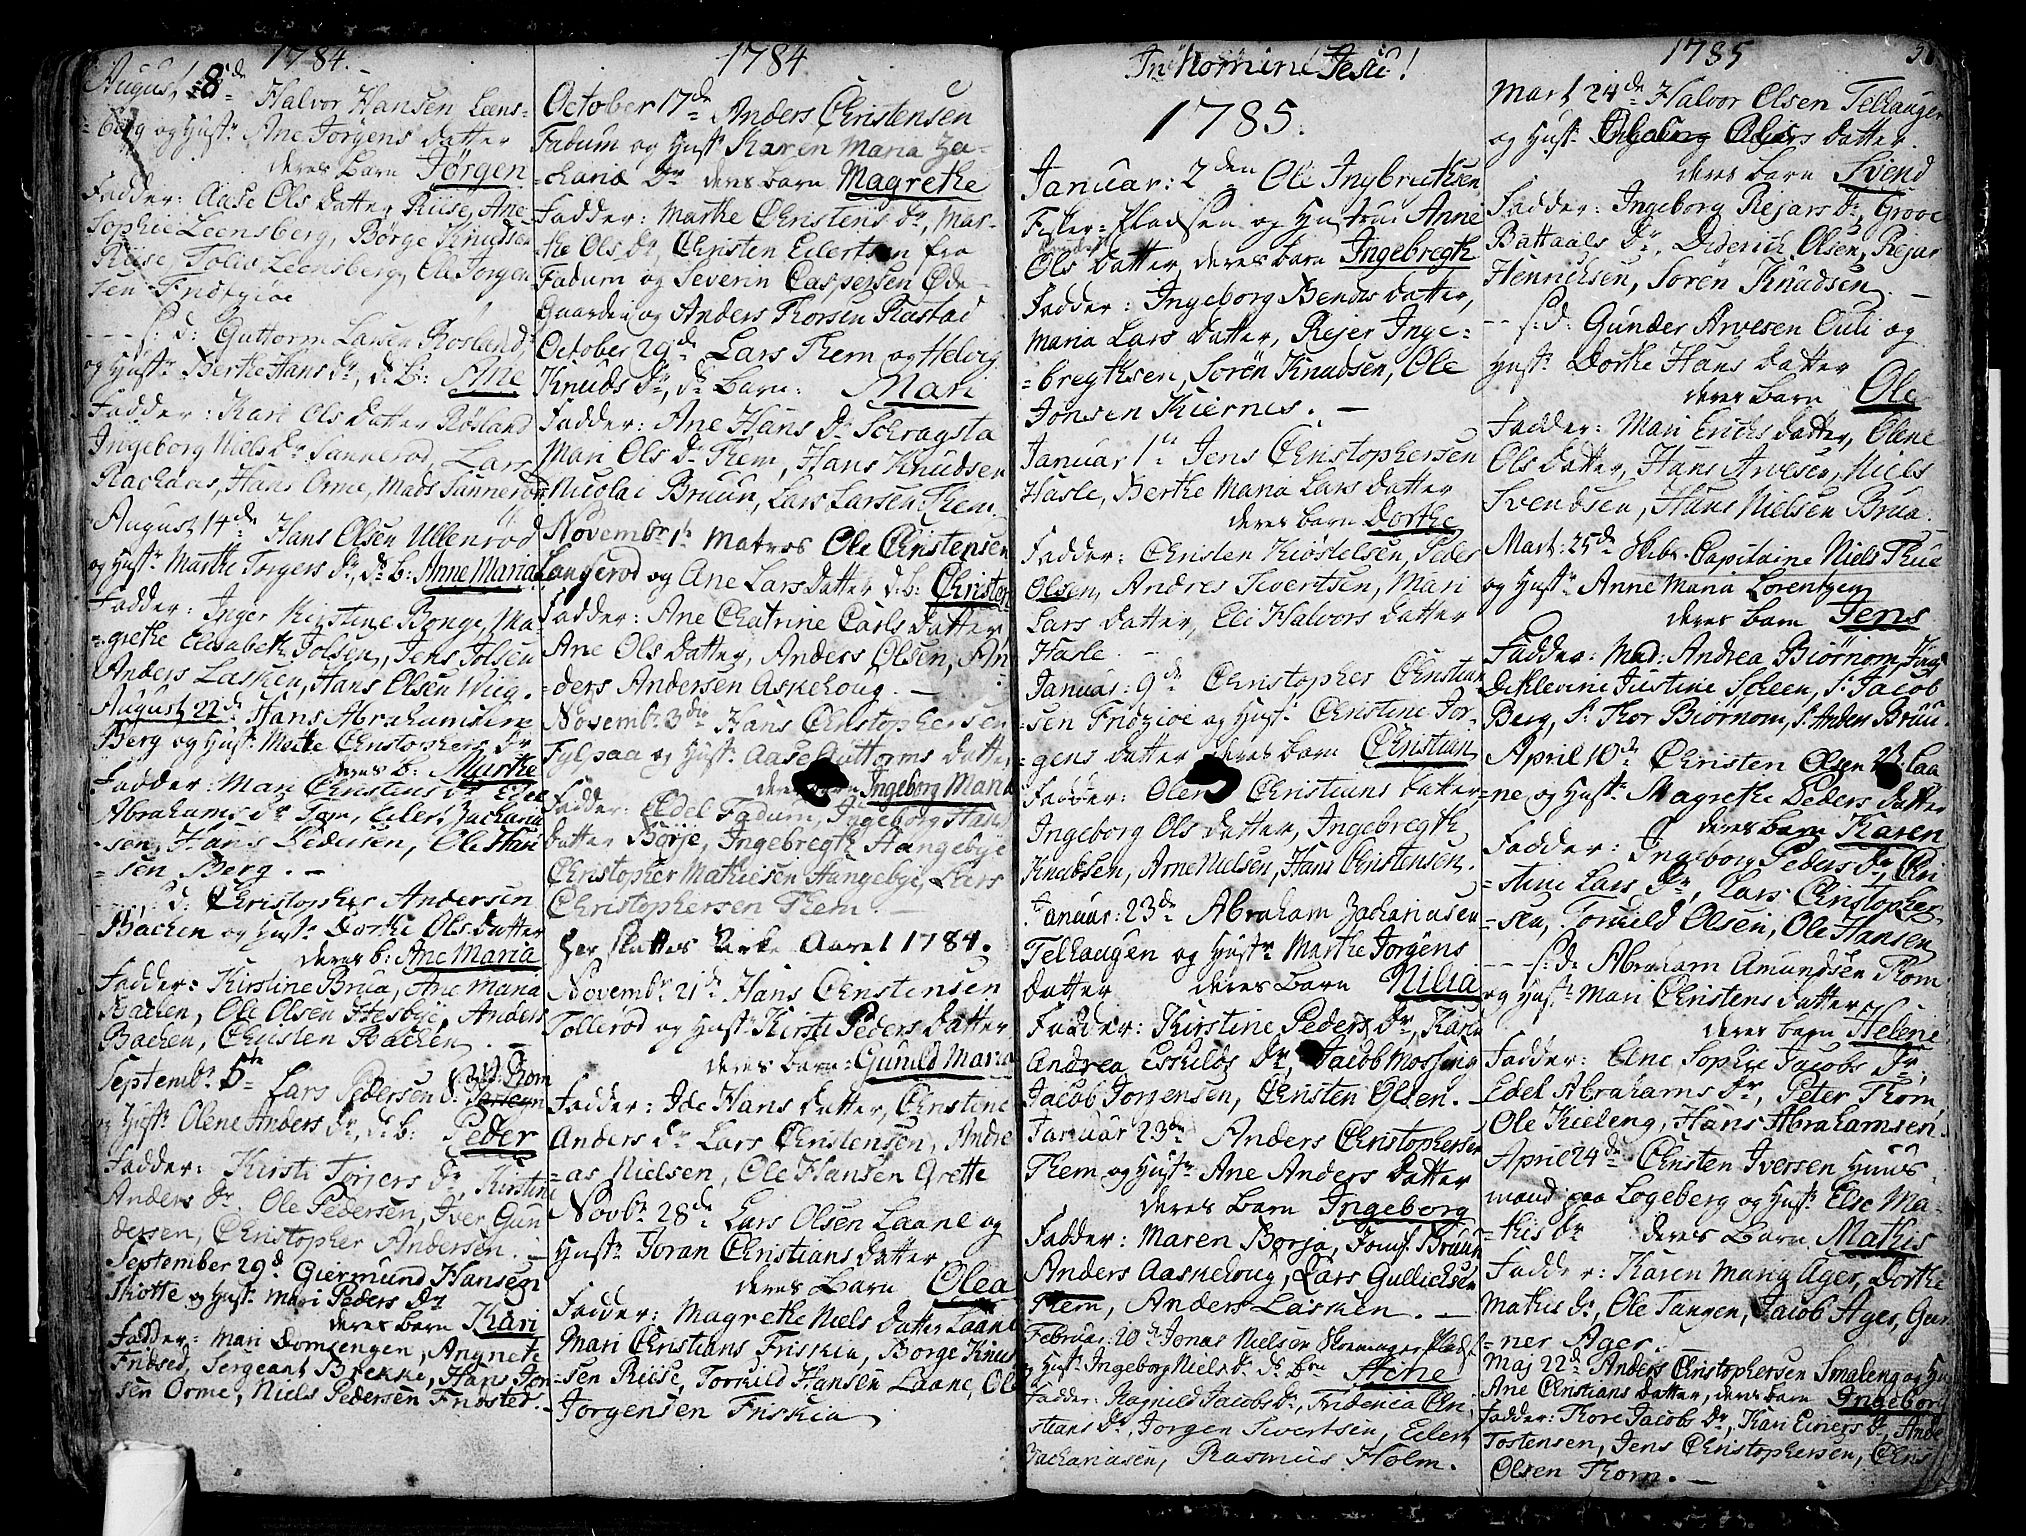 1784.
August 8de Halvor Hansen Leens-
=berg og Hustr Ane Jørgens datter
deres barn Jørgen
Fadder: Aase Ols datter Riise, Ane
Sophie Leensberg, Børge Knudsen
Riise, Tolis Leensberg, Ole Jørgen
sen
s: d: Guttorm Larsen Rosland,
og Hustr Berthe Hans dr, d: b: Ane
Fadder: Kari Ols datter Røsland
Ingeborg Niels dr Sannerød, Lars
Rachaas, Hans Orme, Mads Sannerød
August 14de Hans Olsen Ullenrød
og Hustr Marthe Torgers dr, ds b: Anne Maria
Fadder: Inger Kirstine Bonge, Ma-
=grethe Elisabeth Jolsen, Jens Jolsen
Anders Lasken, Hans Olsen Wiig.
August 22de Hans Abrahamsen
Berg og Hustr Marthe Christophers dr
deres b: Marthe
Fadder: Mari Christens dr Edel
Abrahams dr Tom, Eiler Zacharia
=sen, Hans Pedersen, Ole Han
=sen Berg. —
s: d: Christopher Andersen
Bachen og Hustr Dorthe Ols datter
deres b: Ane Maria
Fadder: Kirstine Brua, Ane Maria
Bachen, Ole Olsen Hesbye, Anders
Bachen, Christen Bachen
Septembr 5te Lars Pedersen
og Hustr Olene Anders dr, d: b: Peder
Fadder: Kirsti Torjers dr, Kirstine
Anders dr, Ole Pedersen, Iver Gun
dersen, Christopher Andersen. —
September 29d Giermund Hansen
Skotte og Hustr Mari Peders dr
deres barn Kari
Fadder: Mari Domsengen, Angnete
Fridsed, Sergeant Brekke, Hans Jon
sen Orme, Niels Pedersen
1784
October 17de Anders Christensen
Fadum og Hustr Karen Maria Za-
=charia Dr deres barn Magrethe
Fadder: Marthe Christens dr, Mar-
the Ols dr, Christen Eilertsen fra
Fadum og Severin Caspersen Øde-
Gaarden og Anders Thorsen Rastad
October 29de Lars Them og Helvig
Knuds dr, ds barn: Mari
Fadder: Ane Hans dr
Mari Ols dr Them, Hans Knudsen
Nicolai Bruun, Lars Larsen Them.
Novembr 1te Matros Ole Christensen
Langerød og Ane Lars datter d: b: Christen
Fadder: Ane Chatrine Carls datter
Ane Ols datter, Anders Olsen, An-
=ders Andersen Askehoug. —
Novembr 3die Hans Christophersen
Fylpaa og Hustr Aase Guttorms datter
deres barn Ingeborg Maria
Fadder: Edel Fadum, Ingeborg Hans
datter Børje, Ingebregth Hangebye
Christopher Mathiesen Hangebye, Lars
Christophersen Them. —
Her sluttes Kirke Aaret 1784.
Novembr 21de Hans Christensen
Tollerød og Hustr Kirsti Peders datter
deres barn: Gunild Maria
Fadder: Ide Hans datter, Christine
Anders dr Lars Christensen, Andre
=as Nielsen, Ole Hansen Grette
Novbr 28de Lars Olsen Laane og
Hustr Joran Christians datter
deres Barn Olea
Fadder: Magrethe Niels datter Laane
Mari Christians Friskia, Børge Knud
=sen Riise, Tormild Hansen Laane, Ole
Jørgensen Friskia
In Nomine Jesu!
1785.
Januar: 2den Ole Ingbrethsen
Fisker-Pladsen og Hustrue Anne
Ols datter deres barn Ingebregth
Fadder: Ingeborg Bendts datter,
Maria Lars datter, Rejer Inge=
=bregthsen, Sørén Knudsen, Ole
Jonsen Kiernes. —
Januar 1te Jens Christophersen
Hasle, Berthe Maria Lars datter
deres barn Dorthe
Fadder: Christen Kiøstelsen, Peder
Olsen, Andres Sivertsen, Mari
Lars datter, Eli Halvors datter
Hasle. —
Januar: 9de Christopher Christian
=sen og Hustr Christine Jør-
=gens datter deres barn Christian
Fadder: Christians datter
Ingeborg Ols datter, Ingebregth
Knudsen, Arne Nielsen, Hans Christensen.
Januar: 23de Abraham Zachariasen
Telhaugen og Hustr Marthe Jørgens
datter deres barn Nilia
Fadder: Kirstine Peders dr, Karen
Andrea Eskilds dr, Jacob Mossing
Jacob Jørgensen, Christen Olsen. —
Januar 23de Anders Christophersen
Them og Hustr Ane Anders datter
deres Barn Ingeborg
Fadder: Maren Borja, Jomf. Bruun
Anders Aaskehoug, Lars Gullichsen
Them, Anders Lasken. —
Februar: 20de Jonas Nielsen
og Hustr Ingeborg Niels dr ds bn Ane
Fadder: Ragnild Jacobs dr, Friderica Chri
stians dr, Jørgen Sivertsen, Eilert
Zachariasen, Rasmus Holm.
1785
Mart 24de Halvor Olsen Telhaugen
og Hustr datter.
deres barn Svend
Fadder: Ingeborg Rejars dr, Grove
Battaals dr, Diderich Olsen, Rejar
Henrichsen, Sorén Knudsen. —
s: d: Gunder Arvesen Ouli og
Hustr Dorthe Hans datter
deres barn Ole
Fadder: Mari Erichs datter, Olene
Ols datter, Hans Arvesen, Niels
Svendsen, Hans Nielsen Brua.
Mart: 25de Skibs-Capitaine Niels Thue
og Hustr Anne Maria Lorentzen
deres barn Jens
Fadder: Mad: Andrea Biørnom, Jfr
Dichlevine Justine Scheen, Sr Jacob
Berg, Sr Thor Biørnom, Sr Anders Bruu
April 10de Christen Olsen Laa
=ne og Hustr Magrethe Peders datter
deres barn Karen
Fadder: Ingeborg Peders dr, Chri
=stine Lars dr, Lars Christopher-
=sen, Tormild Olsen, Ole Hansen
s: d: Abraham Amundsen Thom
og Hustr Mari Christens datter
deres barn Helene
Fadder: Ane Sophie Jacobs dr,
Edel Abrahams dr, Peter Thom,
Ole Kieleng, Hans Abrahamsen.
April 24de Christen Iversen Huus
mand paa Logeberg og Hustr Else Ma-
=this dr deres Barn Mathis
Fadder: Karen Maria Ager, Dorthe
Mathis dr, Ole Tangen, Jacob Ager, Gun
=ner Ager.
Maj 22de Anders Christophersen Smaleng og Hu
Ane Christians datter, deres barn Ingeborg
Fadder: Thore Jacobs dr, Kari Einers dr, Ande
Tostensen, Jens Christophersen, Chris
Olsen Thom. —